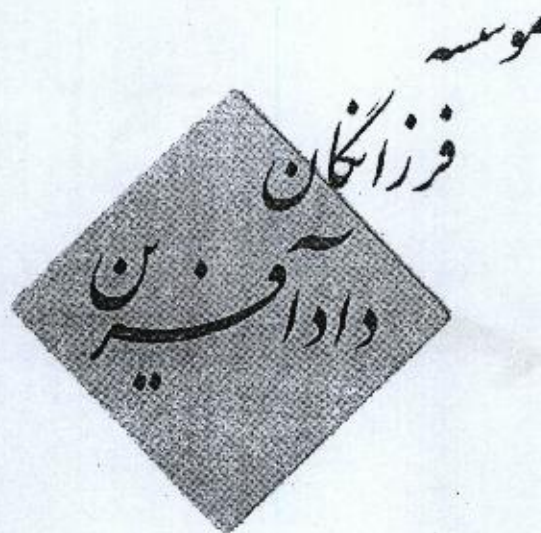 موسسه
فرزانگان
دادآفرین